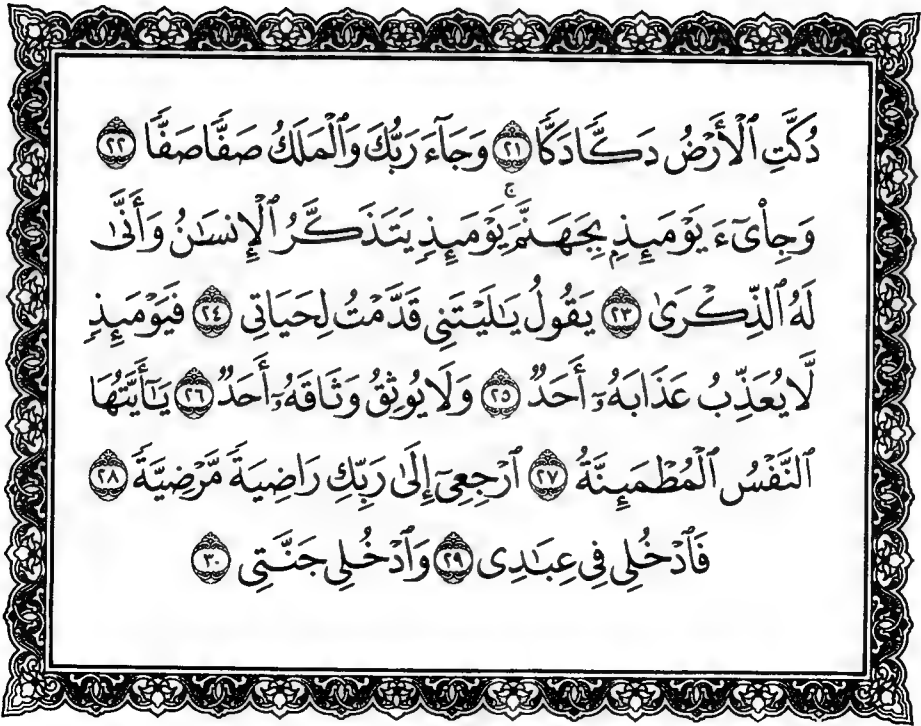 دُكَّتِ ٱلْأَرْضُ دَكًّا دَكًّا ٢١ وَجَآءَ رَبُّكَ وَٱلْمَلَكُ صَفًّا صَفًّا ٢٢
وَجِا۟ىٓءَ يَوْمَئِذٍۭ بِجَهَنَّمَ ۚ يَوْمَئِذٍ يَتَذَكَّرُ ٱلْإِنسَـٰنُ وَأَنَّىٰ
لَهُ ٱلذِّكْرَىٰ ٢٣ يَقُولُ يَـٰلَيْتَنِى قَدَّمْتُ لِحَيَاتِى ٢٤ فَيَوْمَئِذٍ
لَّا يُعَذِّبُ عَذَابَهُۥٓ أَحَدٌ ٢٥ وَلَا يُوثِقُ وَثَاقَهُۥٓ أَحَدٌ ٢٦ يَـٰٓأَيَّتُهَا
ٱلنَّفْسُ ٱلْمُطْمَئِنَّةُ ٢٧ ٱرْجِعِىٓ إِلَىٰ رَبِّكِ رَاضِيَةً مَّرْضِيَّةً ٢٨
فَٱدْخُلِى فِى عِبَـٰدِى ٢٩ وَٱدْخُلِى جَنَّتِى ٣٠